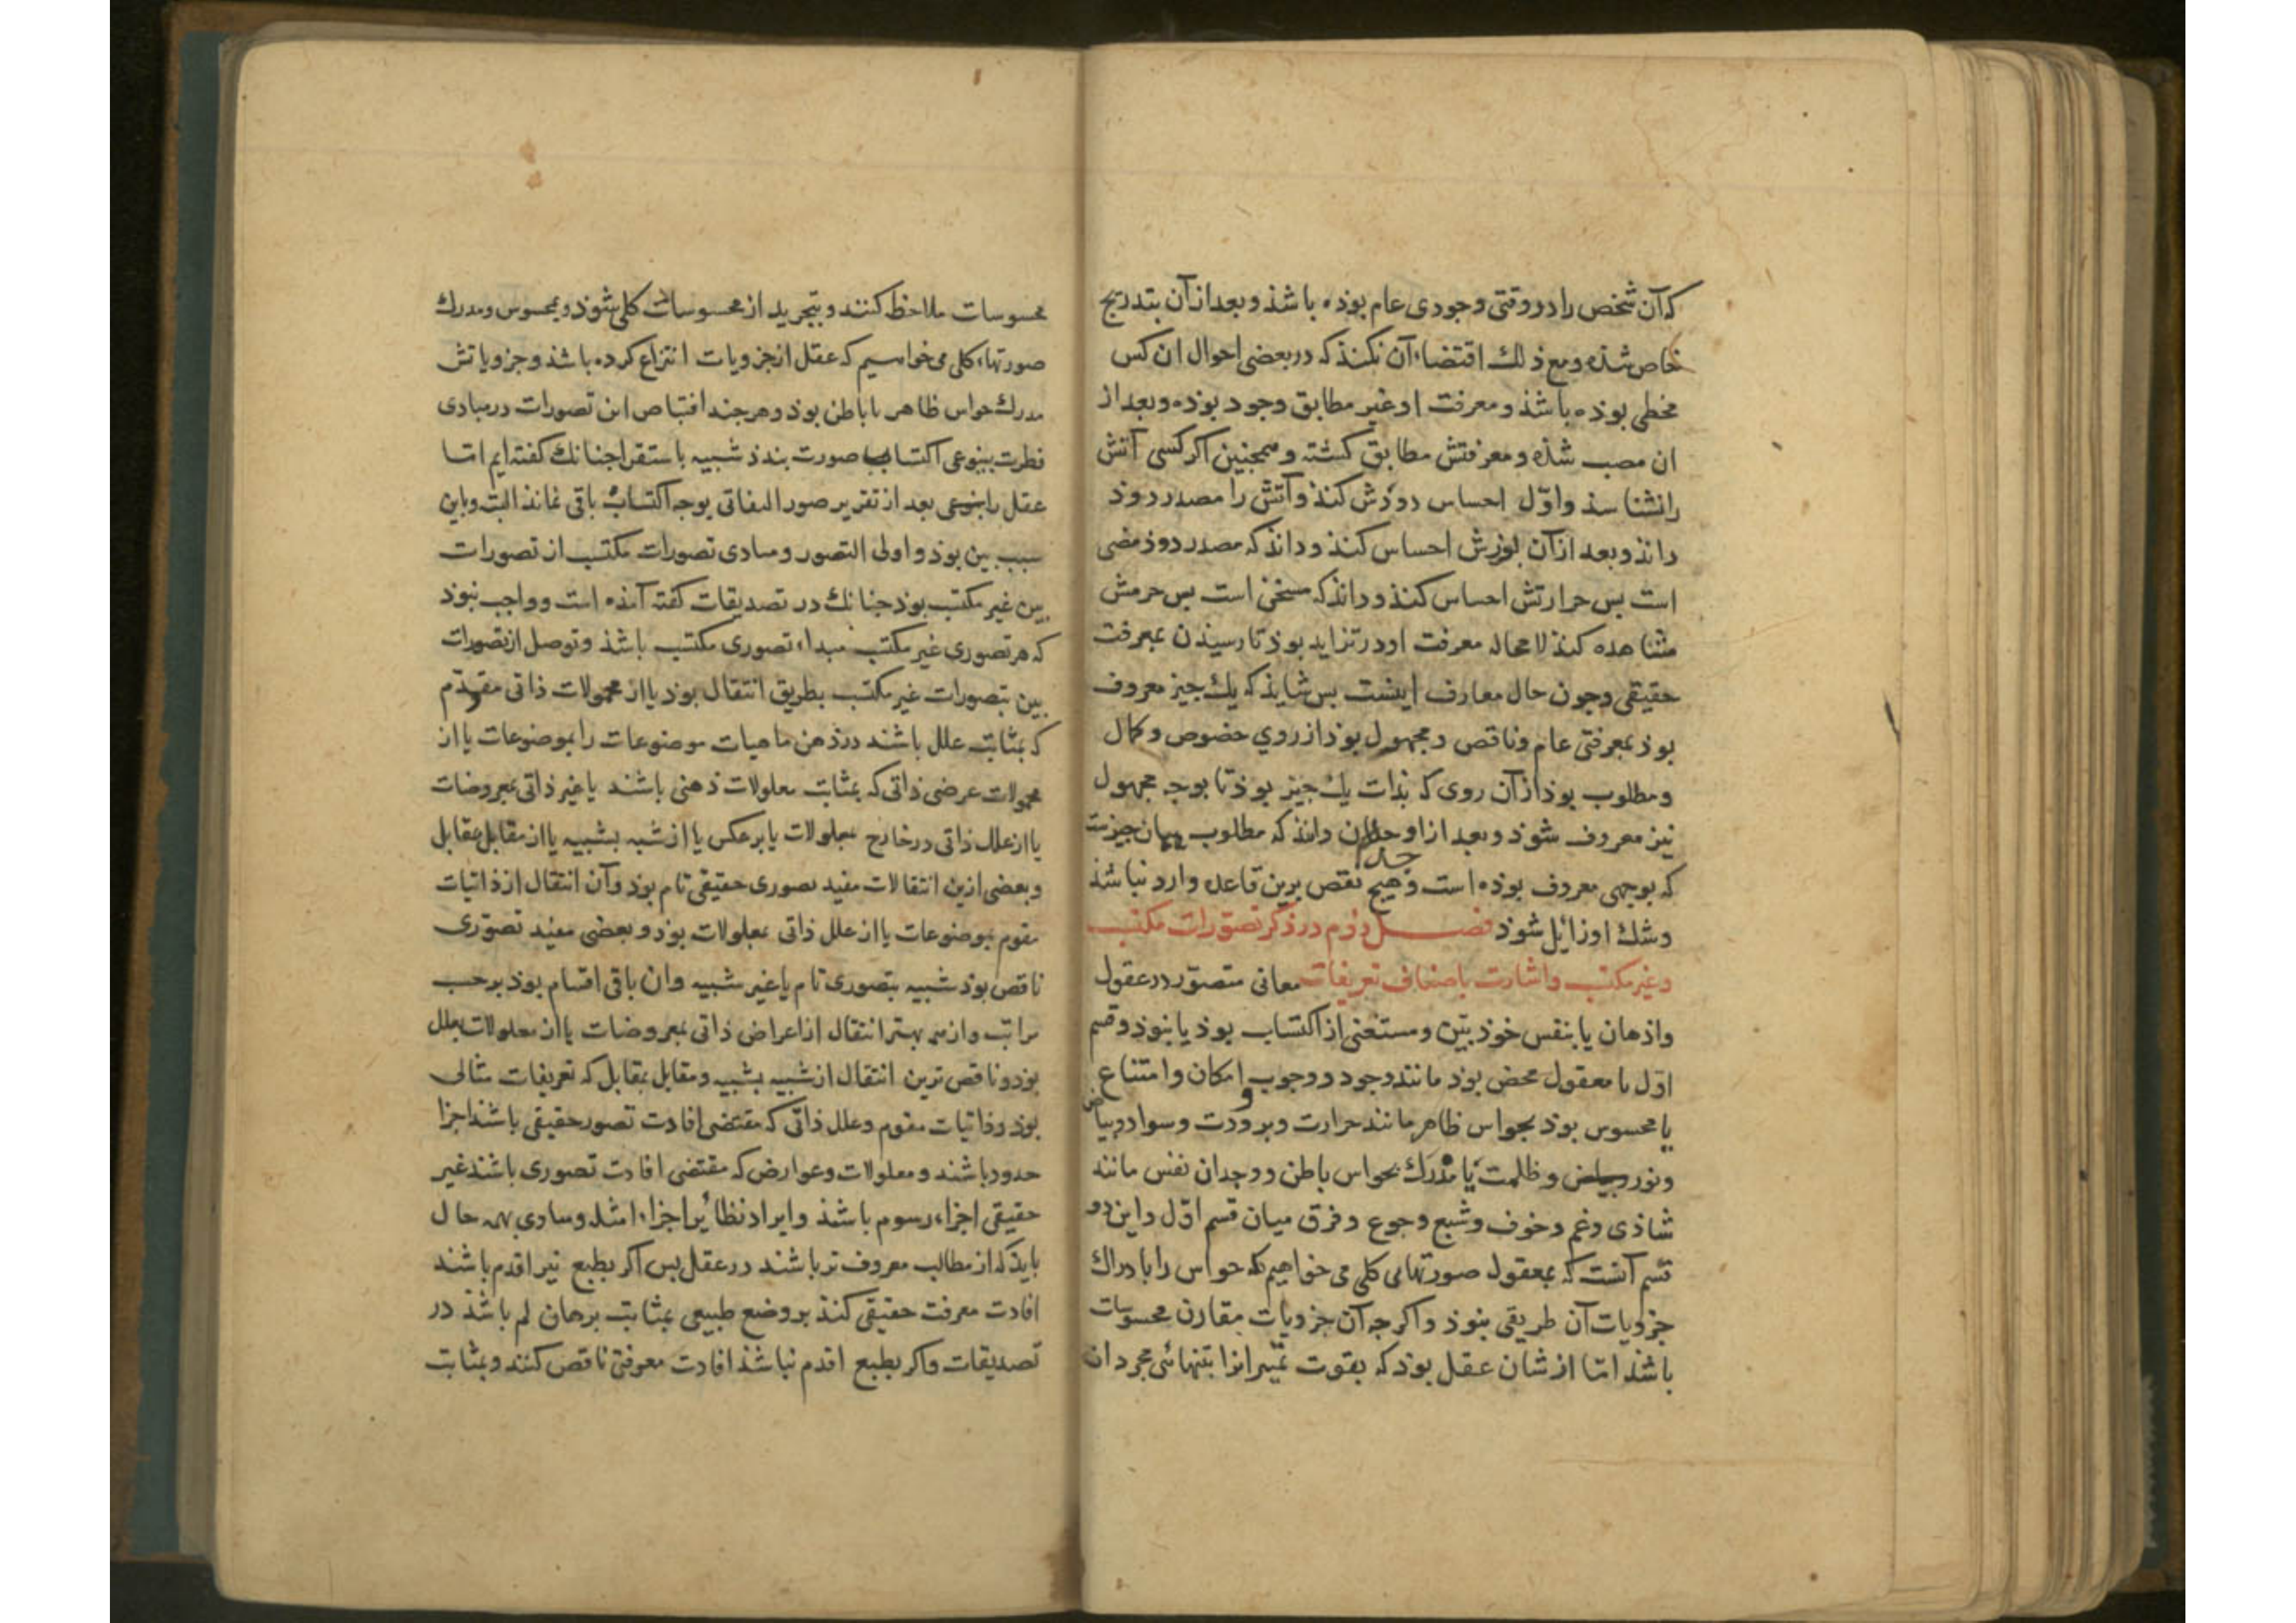 که آن شخص را در وقتی وجودی عام بوذه باشذ و بعد از آن بتدریج
خاص شذه و مع ذلك اقتضاء آن نکنذ که در بعضی احوال ان کس
مخطی بوذه باشذ و معرفت او غیر مطابق وجود بوذه و بعد از
ان مصیب شذه و معرفتش مطابق کشته و همجنین اکر کسی آتش
را نشناسذ و اوّل احساس دوذش کنذ و آتش را مصدر دوذ
دانذ و بعد از آن بنورش احساس کنذ و دانذ که مصدر دوذ مضی
است بس حرارتش احساس کنذ و دانذ که مسخن است بس جرمش
مشاهده کنذ لا محاله معرفت او در تزاید بوذ تا رسیذن بمعرفت
حقیقی و جون حال معارف اینست بس شایذ که یك جیز معروف
بوذ بمعرفتی عام و ناقص و مجهول بوذ از روی خصوص و کمال
و مطلوب بوذ از آن روی که بذات یك جیز بوذ تا بوجه مجهول
نیز معروف شوذ و بعد از او دانذ که مطلوب همان جیزست
که بوجهی معروف بوذه است و هیج نقص برین قاعده وارد نباشذ
و شك او زایل شوذ فصل دوم در ذکر تصورات مکتسب
و غیر مکتسب و اشارت باصناف تعریفات معانی متصوّر در عقول
و اذهان یا بنفس خوذ بیّن و مستغنی از اکتساب بوذ یا نبوذ و قسم
اوّل یا معقول محض بوذ مانند وجود و وجوب و امکان و امتناع
یا محسوس بوذ بحواس ظاهر مانند حرارت و برودت و سواد و بیاض
و نور و ظلمت یا مدرَك بحواس باطن و وجدان نفس مانند
شاذی و غم و خوف و شبع و جوع و فرق میان قسم اوّل و این دو
قسم آنست که بمعقول صورتهای کلی می خواهیم که حواس را بادراك
جزویات آن طریقی نبوذ و اکر جه آن جزویات مقارن محسوسات
باشند امّا از شان عقل بوذ که بقوت تمییز انرا بتنهائی مجرد از
محسوسات ملاحظه کنند و بتجرید از محسوسات کلی شوذ و بمحسوس و مدرك
صورتهاء کلی می خواهیم که عقل از جزویات انتزاع کرده باشذ و جزویاتش
مدرك حواس ظاهر یا باطن بوذ و هرجند اقتناص این تصورات در مبادی
فطرت بنوعی اکتساب صورت بندذ شبیه باستقرا جنانك کفته ایم امّا
عقل را بعد از تقریر صور التفاتی بوجه اکتساب باقی نمانذ البته و باین
سبب بین بوذ و اولی التصور و مبادی تصورات مکتسب از تصورات
بین غیر مکتسب بوذ جنانك در تصدیقات کفته آمذه است و واجب نبوذ
که هر تصوری غیر مکتسب مبداء تصوری مکتسب باشذ و توصل از تصورات
بین بتصورات غیر مکتسب بطریق انتقال بوذ یا از محمولات ذاتی مقوّم
که بمثابت علل باشند در ذهن ماهیات موضوعات را بموضوعات یا از
محمولات عرضی ذاتی که بمثابت معلولات ذهنی باشند یا غیر ذاتی بمعروضات
یا از علل ذاتی در خارج بمعلولات یا برعکس یا از شبیه بشبیه یا از مقابل بمقابل
و بعضی ازین انتقالات مفید تصوری حقیقی تام بوذ و آن انتقال از ذاتیات
مقوم بموضوعات یا از علل ذاتی بمعلولات بوذ و بعضی مفید تصوّری
ناقص بوذ شبیه بتصوری تام یا غیر شبیه و ان باقی اقسام بوذ برحسب
مراتب و از همه بهتر انتقال از اعراض ذاتی بمعروضات یا از معلولات بعلل
بوذ و ناقص ترین انتقال از شبیه بشبیه و مقابل بمقابل که تعریفات مثالی
بوذ و ذاتیات مقوم و علل ذاتی که مقتضی افادت تصور حقیقی باشند اجزا
حدود باشند و معلولات و عوارض که مقتضی افادت تصوری باشند غیر
حقیقی اجزاء رسوم باشند و ایراد نظایر اجزاء امثله و مساوی بهمه حال
بایذ که از مطالب معروف تر باشند در عقل بس اکر بطبع نیز اقدم باشند
افادت معرفت حقیقی کنند بر وضع طبیعی بمثابت برهان لم باشذ در
تصدیقات و اکر بطبع اقدم نباشند افادت معرفتی ناقص کنند و بمثابت